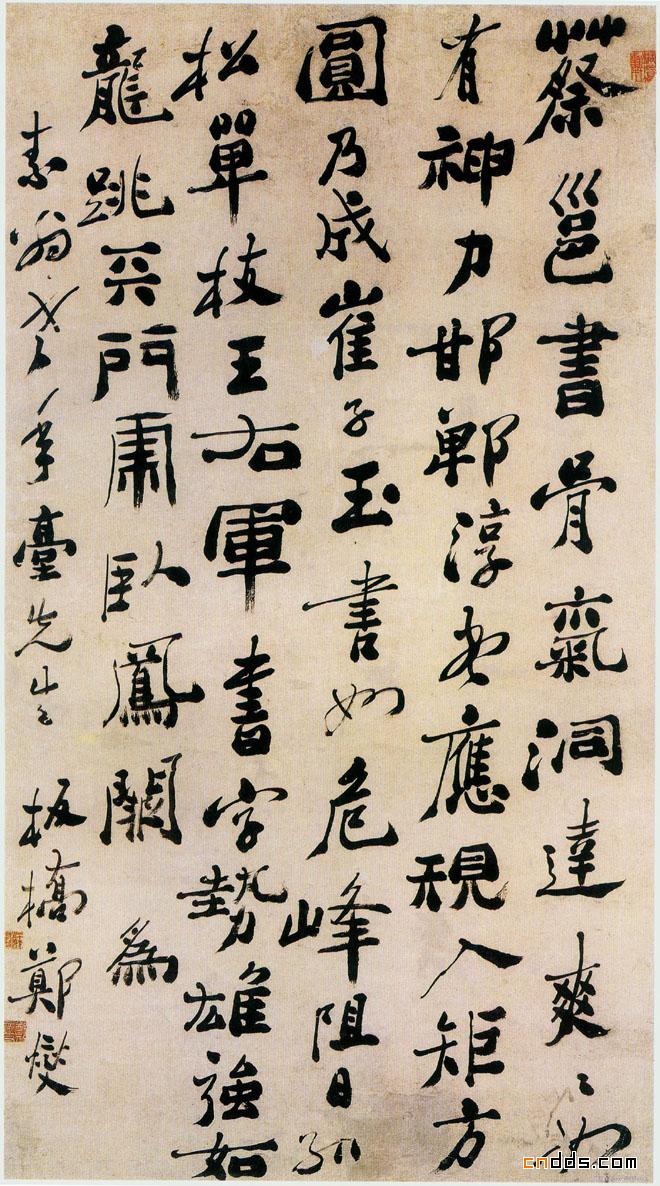 蔡邕書骨氣洞達爽〻如
有神力邯鄲淳書應規入矩方
圓乃成崔子玉書如危峰阻日孤
松單枝王右軍書字勢雄強如
龍跳天門虎臥鳳闕 為
素翁老年臺先生 板橋鄭燮
cndds.com